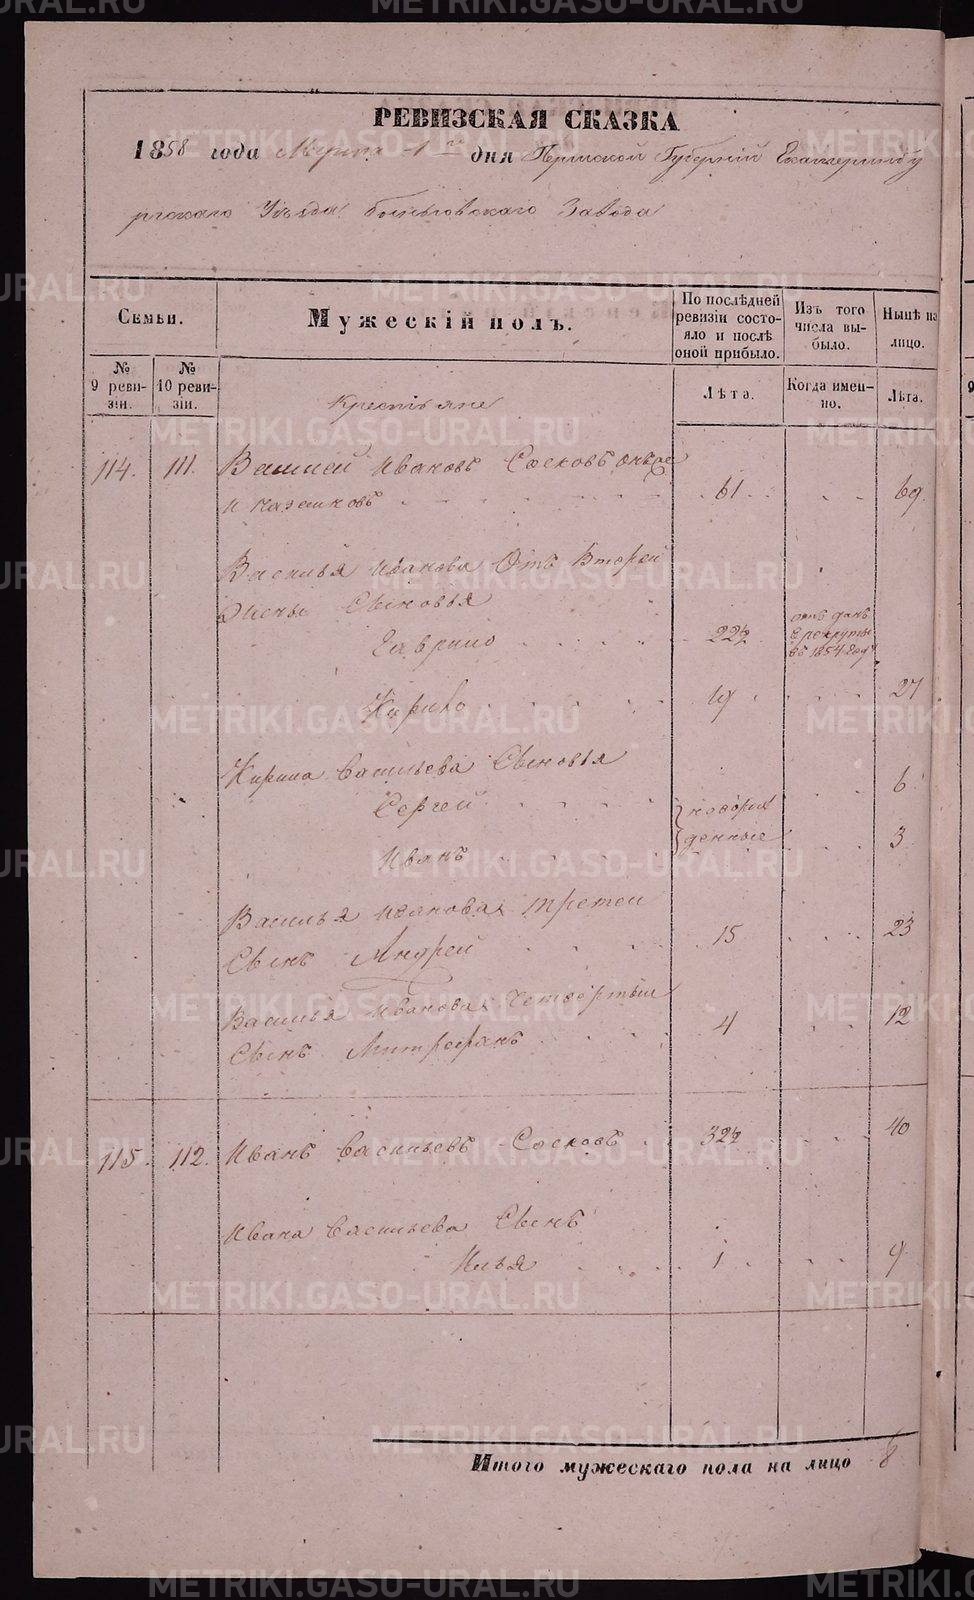 РЕВИЗСКАЯ СКАЗКА
1858 года Марта 1 го дня Пермской Губерній Екатеринбу
ргскаго Уѣзда Завода
Семьи.
Мужескій полъ.
По послѣдней ревизіи состояло и послѣ оной прибыло.
Изъ того числа выбыло.
Нынѣ на лицо.
№ 9 ревизіи.
№ 10 ревизіи.
Лѣта.
Когда именно.
Лѣта.
Крестьяне
114. 111. Василей Ивановъ Сосковъ онъ же
и Казаковъ 61 69
Василья Иванова Отъ Второй
Жены Сыновья
Гаврило 22½ отъ данъ в рекруты въ 1854 году
Кирило 19 27
Кирила Васильева Сыновья
Сергей новорож 6
Иванъ денные 3
Василья Иванова третей
Сынъ Андрей 15 23
Василья Иванова четвертый
Сынъ Митрофанъ 4 12
115. 112. Иванъ Васильевъ Сосковъ 32½ 40
Ивана Васильева Сынъ
Илья 1 9
Итого мужескаго пола на лицо 8
METRIKI.GASO-URAL.RU